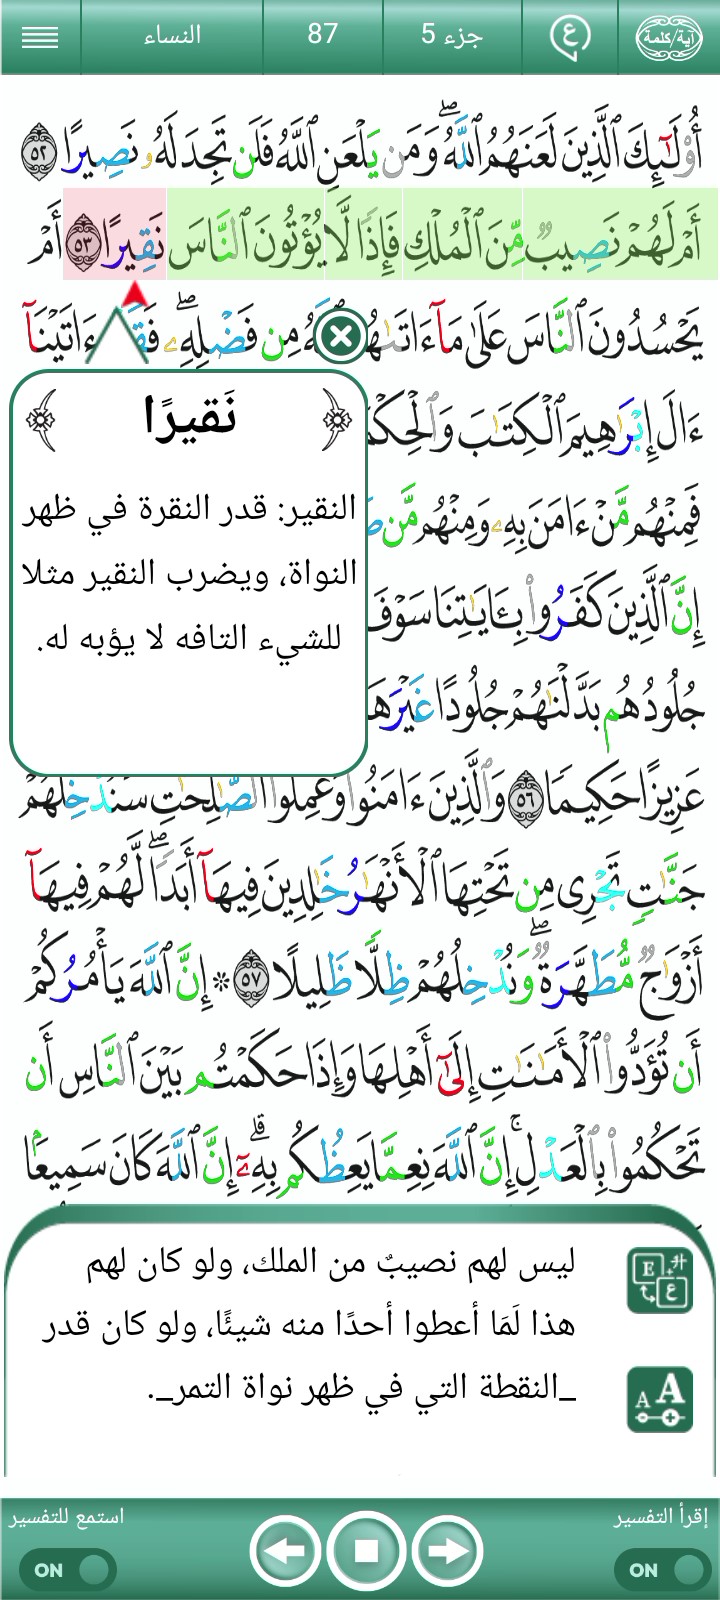 النساء
87
جزء 5
ع
آية/كلمة
أُو۟لَـٰٓئِكَ ٱلَّذِينَ لَعَنَهُمُ ٱللَّهُۖ وَمَن يَلْعَنِ ٱللَّهُ فَلَن تَجِدَ لَهُۥ نَصِيرًا ٥٢
أَمْ لَهُمْ نَصِيبٌ مِّنَ ٱلْمُلْكِ فَإِذًا لَّا يُؤْتُونَ ٱلنَّاسَ نَقِيرًا ٥٣ أَمْ
يَحْسُدُونَ ٱلنَّاسَ عَلَىٰ مَآ ءَاتَىٰهُمُ مِن فَضْلِهِۦۖ ءَاتَيْنَآ
ءَالَ إِبْرَٰهِيمَ ٱلْكِتَـٰبَ
فَمِنْهُم مَّنْ ءَامَنَ بِهِۦ وَمِنْهُم مَّن
إِنَّ ٱلَّذِينَ كَفَرُوا۟ بِـَٔايَـٰتِنَا سَوْفَ
جُلُودُهُم بَدَّلْنَـٰهُمْ جُلُودًا
عَزِيزًا حَكِيمًا ٥٦ وَٱلَّذِينَ ءَامَنُوا۟ وَعَمِلُوا۟ ٱلصَّـٰلِحَـٰتِ سَنُدْخِلُهُمْ
جَنَّـٰتٍ تَجْرِى مِن تَحْتِهَا ٱلْأَنْهَـٰرُ خَـٰلِدِينَ فِيهَآ أَبَدًاۖ لَّهُمْ فِيهَآ
أَزْوَٰجٌ مُّطَهَّرَةٌۖ وَنُدْخِلُهُمْ ظِلًّا ظَلِيلًا ٥٧ ۞ إِنَّ ٱللَّهَ يَأْمُرُكُمْ
أَن تُؤَدُّوا۟ ٱلْأَمَـٰنَـٰتِ إِلَىٰٓ أَهْلِهَا وَإِذَا حَكَمْتُم بَيْنَ ٱلنَّاسِ أَن
تَحْكُمُوا۟ بِٱلْعَدْلِۚ إِنَّ ٱللَّهَ نِعِمَّا يَعِظُكُم بِهِۦٓۗ إِنَّ ٱللَّهَ كَانَ سَمِيعًۢا
﴿ نَقيرًا ﴾
النقير: قدر النقرة في ظهر
النواة، ويضرب النقير مثلا
للشيء التافه لا يؤبه له.
ليس لهم نصيبٌ من الملك، ولو كان لهم
هذا لَمَا أعطوا أحدًا منه شيئًا، ولو كان قدر
_النقطة التي في ظهر نواة التمر_.
E
ع
A A
إقرأ التفسير
استمع للتفسير
ON
ON